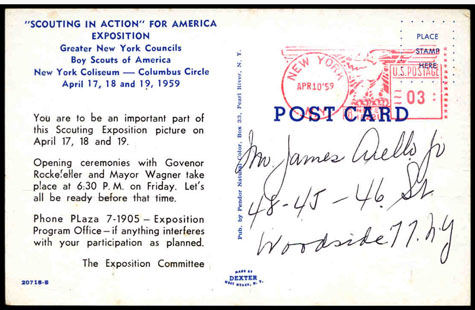 "SCOUTING IN ACTION" FOR AMERICA
EXPOSITION
Greater New York Councils
Boy Scouts of America
New York Coliseum — Columbus Circle
April 17, 18 and 19, 1959
You are to be an important part of
this Scouting Exposition picture on
April 17, 18 and 19.
Opening ceremonies with Govenor
Rockefeller and Mayor Wagner take
place at 6:30 P. M. on Friday. Let's
all be ready before that time.
Phone PLaza 7-1905 — Exposition
Program Office — if anything interferes
with your participation as planned.
The Exposition Committee
20718-B
Pub. by Pendor Natural Color, Box 33, Pearl River, N. Y.
MADE BY
DEXTER
WEST NYACK, N. Y.
PLACE
STAMP
HERE
NEW YORK
APR10'59
U.S. POSTAGE
03
POST CARD
Mr. James Aiello Jr
48-45-46 St
Woodside 77. NY